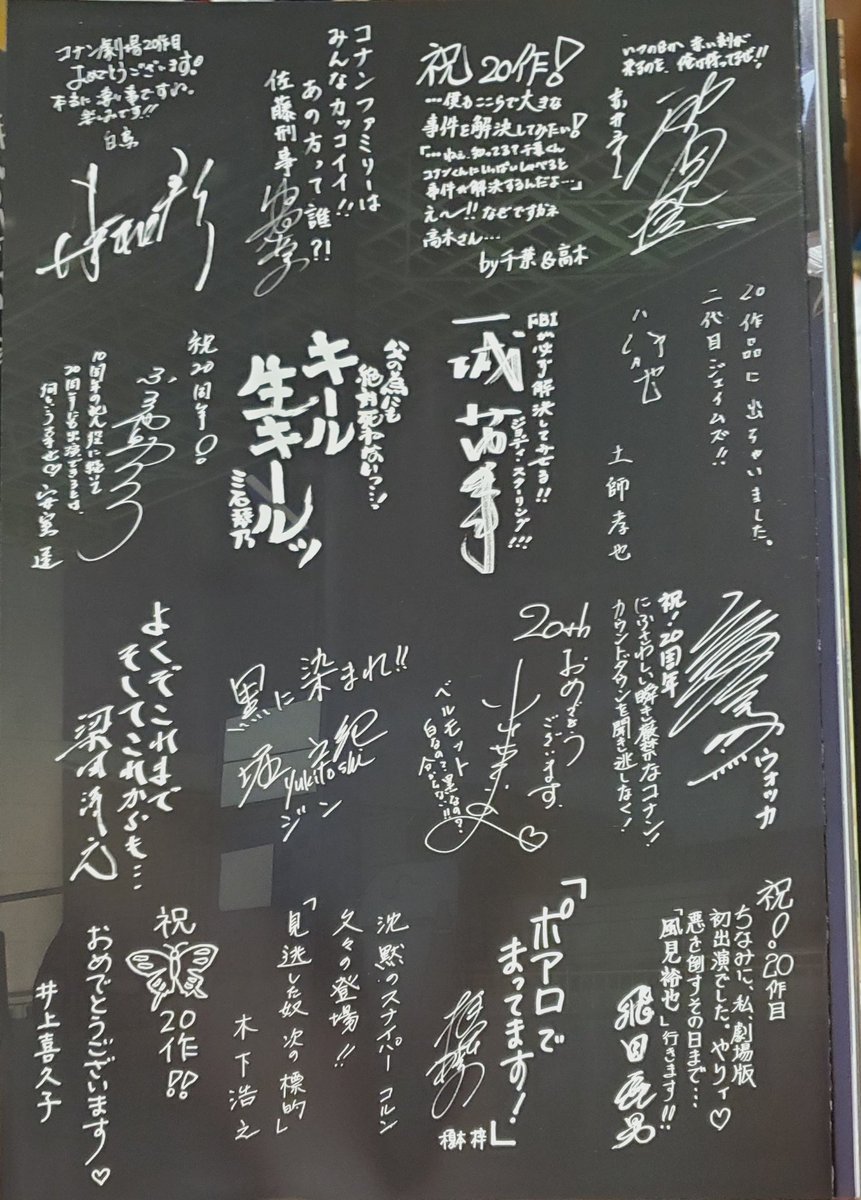 いつの日か、赤い刻が
来るのを、俺は待ってるぜ!!
祝20作!
…僕もここらで大きな
事件を解決してみたい!
「…ねぇ、知ってる?千葉くん
コナンくんにいっぱいしゃべると
事件が解決するんだよ…」
え〜!!なぜですかネ
高木さん…
by千葉&高木
コナンファミリーは
みんなカッコイイ!!
あの方って誰?!
佐藤刑事
コナン劇場20作目
おめでとうございます!
本当に凄い事ですね。
楽しみです!!
白鳥
20作品に出ちゃいました。
二代目ジェイムズ!!
土師孝也
FBIが必ず解決してみせる!!
ジョディ・スターリング!!!
一城みゆ希
父の為にも
絶対死ねない…っ!
キール
生キールッ
三石琴乃
祝20周年!
10周年の記念碑に続いて
20周年にも出演できるとは、
何という幸せ♡
祝!20周年
にふさわしい瞬き厳禁なコナン!
カウントダウンを聞き逃しなく!
ウォッカ
20th
おめでとう
ございます。
ベルモット
白なの?黒なの?
分からない!!
黒に染まれ!!
堀 之紀
Yukitoshi
ジン
よくぞこれまで
そしてこれからも…
祝!20作目
ちなみに、私、劇場版
初出演でした。やりィ♡
悪を倒すその日まで…
「風見裕也」行きます!!
飛田展男
「ポアロで
まってます!」
榎本梓
沈黙のスナイパー コルン
久々の登場!!
「見逃した奴 次の標的」
木下浩之
祝
20作!!
おめでとうございます♡
井上喜久子